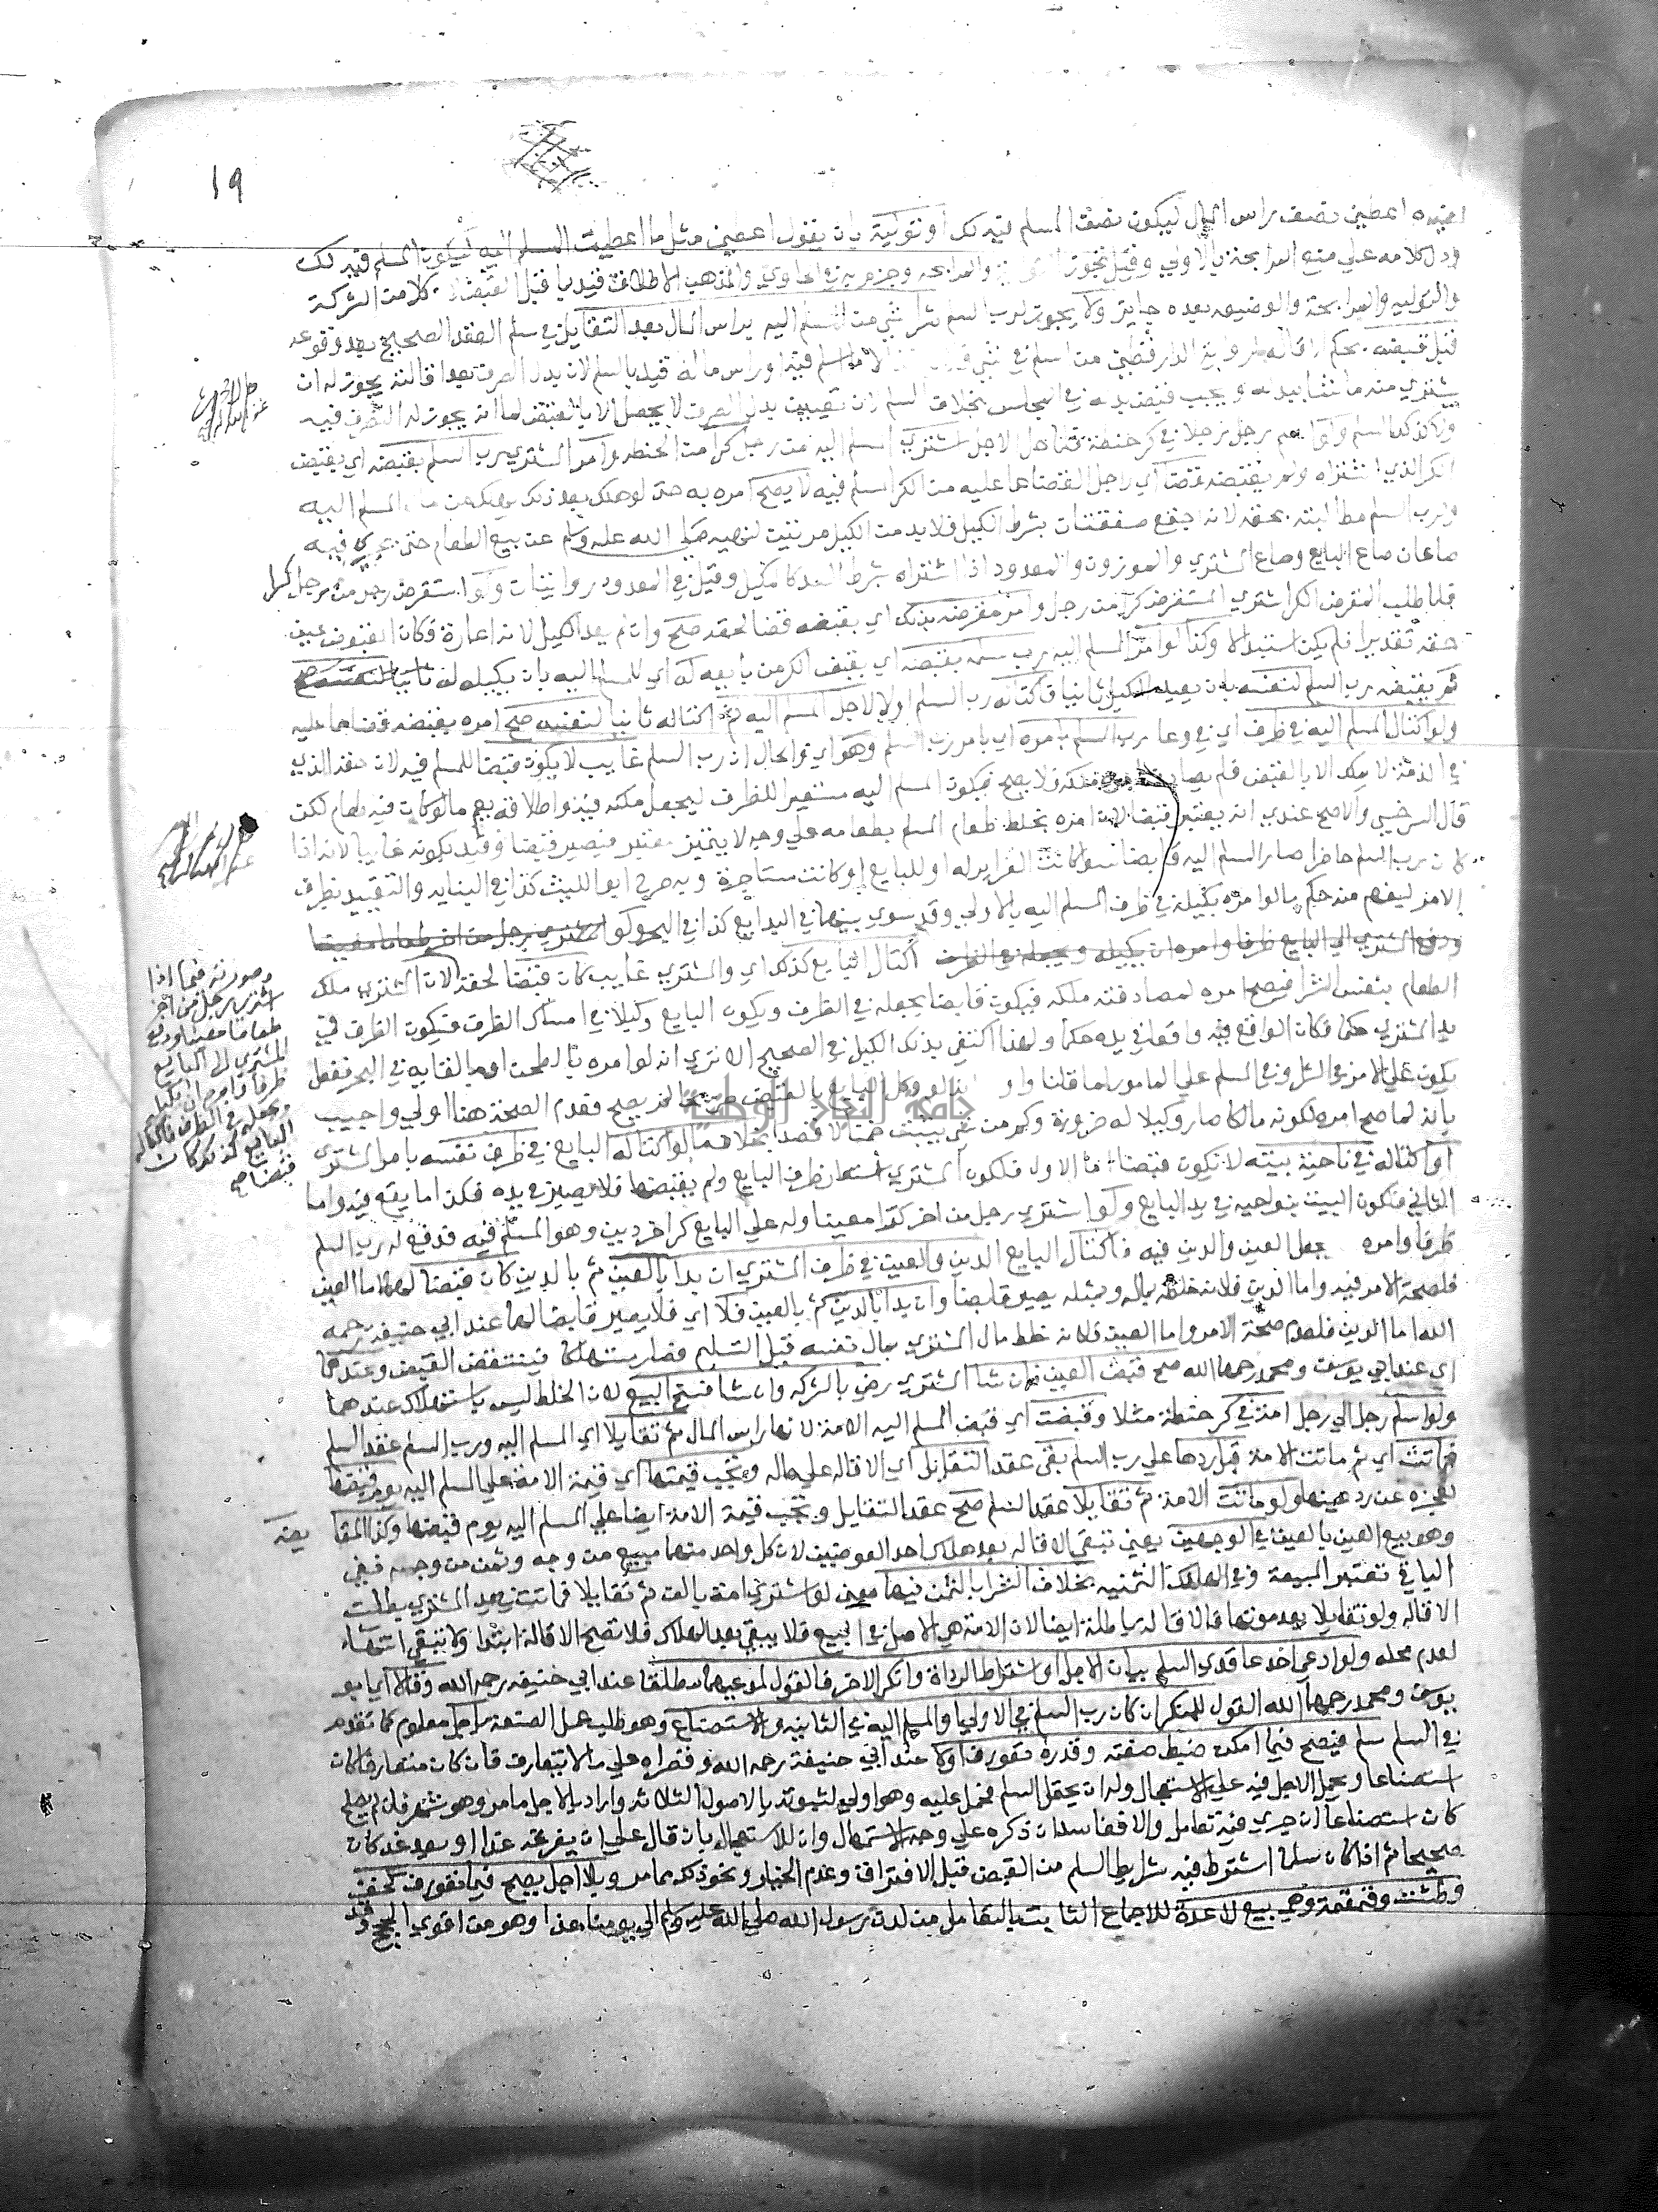 ١٩
لغيره اعطني نصف راس المال ليكون نصف المسلم فيه لك او تولية بان يقول اعطني مثل ما اعطيت المسلم اليه ليكون المسلم فيه لك
ودل كلامه علي منع المرابحة بالاولي وقيل تجوز والمرابحه وجزم به في الحاوي والمذهب الاطلاق قيد بما قبل القبض لان كلا من الشركة
والتوليه والمرابحة والوضيعه بعده جايز ولا يجوز لرب السلم شرا شي من المسلم اليه براس المال بعد التقايل في سلم العقد الصحيح بعد وقوعه
قبل قبضه بحكم الاقاله لرواية الدارقطني من اسلم في شي فلا الا ما اسلم فيه او راس ماله قيد بالسلم لان بدل الصرف بعد اقالته يجوز له ان
يشتري منه ما شا بيده ويجب قبض بدله في المجلس بخلاف السلم لان تعيين بدل الصرف لا يحصل الا بالقبض لما انه يجوز له التصرف فيه
ولا كذلك السلم ولو اسلم رجل رجلا في كر حنطة فلما حل الاجل اشتري المسلم اليه من رجل كرا من الحنطه وامر المشتري رب السلم بقبضه اي بقبض
الكر الذي اشتراه ولم يقبضه قضا اي لاجل القضا لما عليه من الكر المسلم فيه لا يصح امره به حتي لو هلك بعد ذلك يهلك من مال المسلم اليه
ولرب السلم مطالبته بحقه لانه اجتمع صفقتان بشرط الكيل فلا بد من الكيل مرتين لنهيه صلي الله عليه وسلم عن بيع الطعام حتي يجري فيه
صاعان صاع البايع وصاع المشتري والموزون والمعدود اذا اشتراه بشرط العد كالمكيل وقيل في المعدود روايتان ولو استقرض رجل من رجل كرا
فلما طلب المقرض الكر اشتري المستقرض كرا من رجل وامر مقرضه بذلك اي بقبضه قضا لحقه صح وان لم يعد الكيل لانه اعارة فكان المقبوض عين
حقه تقديرا فلم يكن استبدالا وكذا لو امر المسلم اليه رب سلمه بقبضه اي بقبض الكر من بايعه له اي للمسلم اليه بان يكيله له
ثم يقبضه رب السلم لنفسه بان يعيد الكيل ثانيا فاكتاله رب السلم اولا لاجل المسلم اليه ثم اكتاله ثانيا لنفسه صح امره بقبضه قضا لما عليه
ولو اكتال المسلم اليه في ظرف اي في وعا رب السلم بامره اي بامر رب السلم وهو اي والحال ان رب السلم غايب لا يكون قبضا للمسلم فيه لان حقه الذي
في الذمة لا يملك الا بالقبض فلم يصادف ملكه فلا يصح فيكون المسلم اليه مستعيرا للظرف ليجعل ملكه فيه واطلاقه يعم ما لو كان فيه طعام لكن
قال السرخسي والاصح عندي انه يعتبر قبضا لان امره بخلط طعام المسلم بطعامه علي وجه لا يتميز معتبر فيصير قبضا وقيد بكونه غايبا لانه اذا
كان رب السلم حاضرا صار المسلم اليه قابضا سوا كانت الغراير له او للبايع او كانت مستاجرة وبه صرح ابو الليث كذا في البنايه والتقييد بظرف
الامر ليفهم منه حكم ما لو امره بكيله في ظرف المسلم اليه بالاولي وقد سوي بينهما في البدايع كذا في البحر ولو
اكتال البايع كذلك اي والمشتري غايب كان قبضا لحقه لان المشتري ملك
الطعام بنفس الشرا فيصح امره لمصادفته ملكه فيكون قابضا بجعله في الظرف ويكون البايع وكيلا في امساك الظرف فيكون الظرف في
يد المشتري حكما فكان الواقع فيه واقعا في يده حكما ولهذا اكتفي بذلك الكيل في الصحيح الا تري انه لو امره بالطحن او بالقايه في البحر ففعل
يكون علي الامر في الشرا وفي السلم علي المامور لما قلنا وكل البايع بالقبض صريحا لم يصح فعدم الصحة هنا اولي واجيب
بانه لما صح امره لكونه مالكا صار وكيلا له ضرورة وكم من شي يثبت ضمنا لا قصدا بخلاف ما لو اكتاله البايع في ظرف نفسه بامر المشتري
او اكتاله في ناحية بيته لا يكون قبضا اما الاول فلكون المشتري استعار ظرف البايع ولم يقبضه فلا يصير في يده فكذا ما يقع فيه واما
الثاني فلكون البيت بنواحيه في يد البايع ولو اشتري رجل من اخر كرا معينا وله علي البايع كر اخر دين وهو المسلم فيه فدفع له رب السلم
ظرفا وامره بجعل العين والدين فيه فاكتال البايع الدين والعين في ظرف المشتري ان بدا بالعين ثم بالدين كان قبضا لهما اما العين
فلصحة الامر فيه واما الدين فلانه خلطه بماله وبمثله يصير قابضا وان بدا بالدين ثم بالعين فلا اي فلا يصير قابضا لهما عند ابي حنيفه رحمه
الله اما الدين فلعدم صحة الامر واما العين فلانه خلط مال المشتري بمال نفسه قبل التسليم فصار مستهلكا فينتقض القبض وعندهما
اي عند ابي يوسف ومحمد رحمهما الله صح قبض العين فان شا المشتري رضي بالشركه وان شا فسخ البيع لان الخلط ليس باستهلاك عندهما
ولو اسلم رجل الي رجل امة في كر حنطة مثلا وقبضت اي قبض المسلم اليه الامة لانها راس المال ثم تقايلا اي المسلم اليه ورب السلم عقد السلم
فماتت اي ثم ماتت الامة قبل ردها علي رب السلم بقي عقد التقايل اي الاقاله علي حاله وتجب قيمتها اي قيمة الامة علي المسلم اليه يوم قبضها
لعجزه عن رد عينها ولو ماتت الامة ثم تقايلا عقد السلم صح عقد التقايل وتجب قيمة الامة ايضا علي المسلم اليه يوم قبضها وكذا المقايضه
وهو بيع العين بالعين في الوجهين يعني تبقي الاقاله بعد هلاك احد العوضين لان كل واحد منهما مبيع من وجه وثمن من وجه ففي
الباقي تعتبر المبيعة وفي الهالك الثمنيه بخلاف الشرا بالثمن فيهما يعني لو اشتري امة بالف ثم تقايلا فماتت في يد المشتري بطلت
الاقاله ولو تقايلا بعد موتها فالاقاله باطلة ايضا لان الامة هي الاصل في البيع فلا يبقي بعد الهلاك فلا تصح الاقالة ابتدا ولا تبقي انتهاء
لعدم محله ولو ادعي احد عاقدي السلم بيان الاجل او اشتراط الرداة وانكر الاخر فالقول لمدعيهما مطلقا عند ابي حنيفه رحمه الله وقالا اي ابو
يوسف ومحمد رحمهما الله القول للمنكر ان كان رب السلم في الاولي والمسلم اليه في الثانيه والاستصناع وهو طلب عمل الصنعة باجل معلوم كما تقدم
في السلم سلم فيصح فيما امكن ضبط صفته وقدره تعورف او لا عند ابي حنيفة رحمه الله وقصراه علي ما لا يتعارف فان كان متعارفا كان
استصناعا ويحمل الاجل فيه علي الاستعجال وله ان يحتمل السلم فحمل عليه وهو اولي لثبوته بالاصول الثلاثه واراد بالاجل ما مر وهو شهر فان لم يصلح
كان استصناعا ان جري فيه تعامل والا ففاسد ان ذكره علي وجه الاستمهال وان للاستعجال بان قال علي ان يفرغه غدا او بعد غد كان
صحيحا ثم اذا كان سلما اشترط فيه شرايط السلم من القبض قبل الافتراق وعدم الخيار ونحو ذلك مما مر وبلا اجل يصح فيما تعورف كخف
وطشت وقمقمة وهي بيع لا عدة للاجماع الثابت بالتعامل من لدن رسول الله صلي الله عليه وسلم الي يومنا هذا وهو من اقوي الحجج وقد
وصورته فيما اذا
اشتري رجل من اخر
طعاما معينا ودفع
المشتري الي البايع
ظرفا وامره ان يكيله
ويجعله في الظرف فاكتاله
البايع كذلك كان
قبضا صح
جامعة النجاح الوطنية